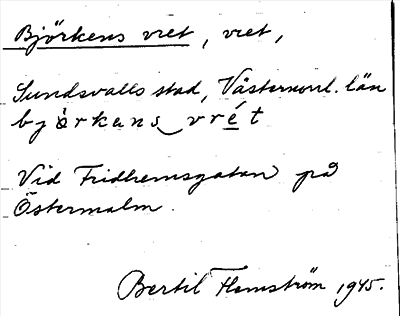 Björkens vret, vret,
Sundsvalls stad, Västernorrl. län
björkens‿vrét
Vid Fridhemsgatan på
Östermalm.
Bertil Flemström 1945.